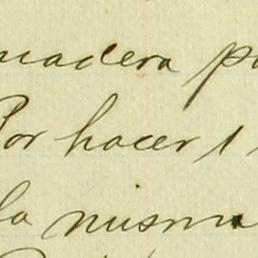 madera pa
Por hacer 1
la misma